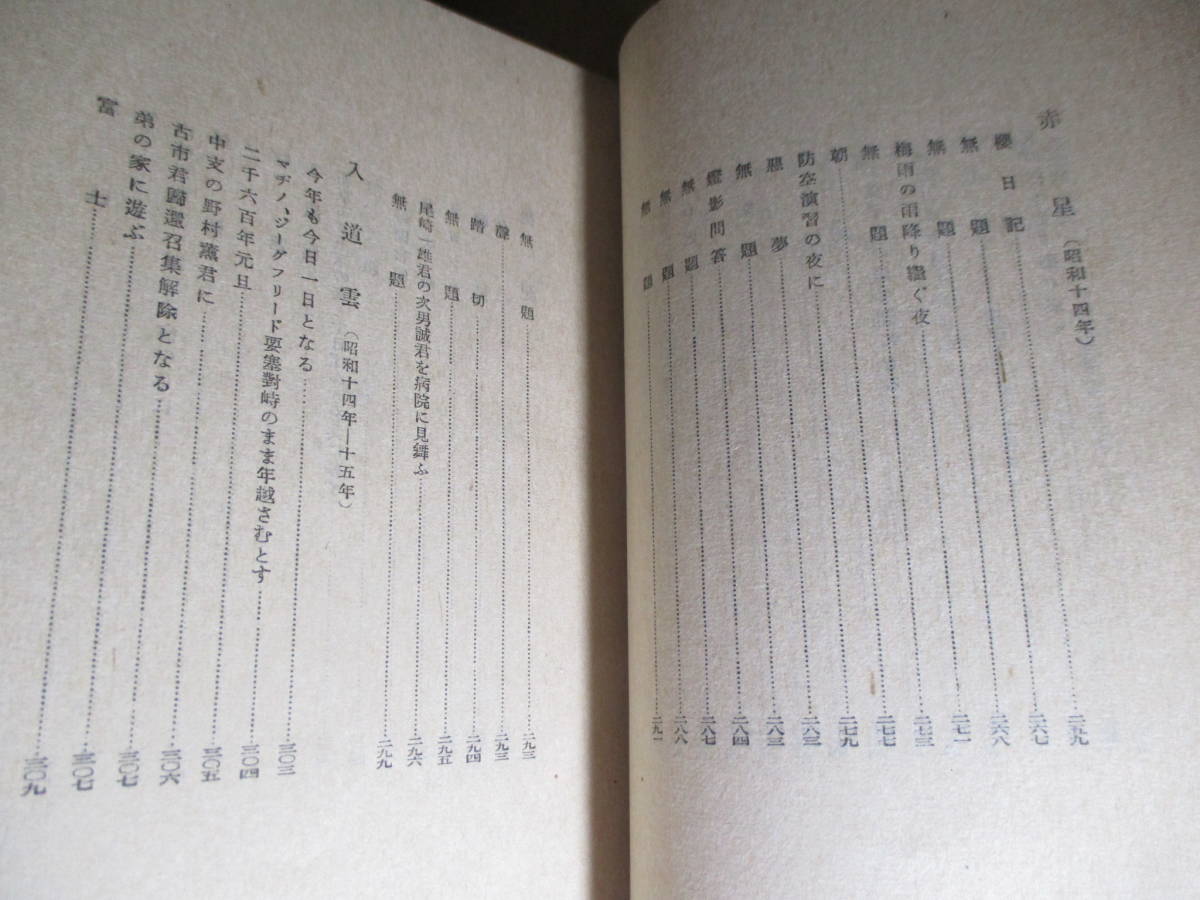 赤星（昭和十四年）
櫻日記……二五九
無題……二六七
無題……二六八
梅雨の雨降り繼ぐ夜……二七一
無題……二七三
朝……二七七
防空演習の夜に……二七九
惡夢……二八三
無題……二八三
燈影問答……二八四
無題……二八七
無題……二八八
無題……二九一
無題……二九三
聲……二九三
踏切……二九四
無題……二九五
尾崎一雄君の次男誠君を病院に見舞ふ……二九六
無題……二九九
入道雲（昭和十四年―十五年）
今年も今日一日となる……三〇三
マヂノ、ジーグフリード要塞對峙のまま年越さむとす……三〇四
二千六百年元旦……三〇五
中支の野村薫君に……三〇六
古市君歸還召集解除となる……三〇七
弟の家に遊ぶ……三〇七
富士……三〇九